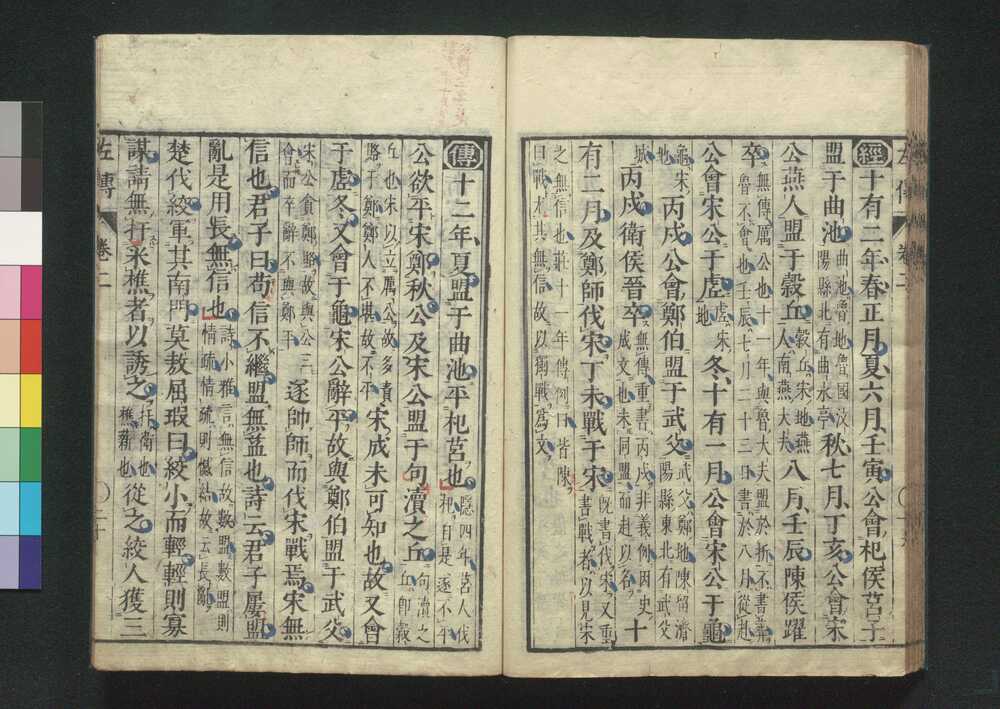 經十有二年春正月夏六月壬寅公會杞侯莒子
盟于曲池曲池魯地魯國汶陽縣北有曲水亭秋七月丁亥公會宋
公燕人盟于穀丘穀丘宋地燕人南燕大夫八月壬辰陳侯躍
卒無傳厲公也十一年與魯大夫盟於折不書葬魯不會也壬辰七月二十三日書於八月從赴
公會宋公于虛虛宋地冬十有一月公會宋公于龜
龜宋地丙戌公會鄭伯盟于武父武父鄭地陳留濟陽縣東北有武父
城丙戌衛侯晉卒無傳重書丙戌非義例因史成文也未同盟而赴以名十
有二月及鄭師伐宋丁未戰于宋既書伐宋又重書戰者以見宋
之無信也莊十一年傳例曰皆陳曰戰尤其無信故以獨戰為文
傳十二年夏盟于曲池平杞莒也隱四年莒人伐杞自是遂不平
公欲平宋鄭秋公及宋公盟于句瀆之丘句瀆之丘即穀
丘也宋以立厲公故多責賂于鄭鄭人不堪故不平宋成未可知也故又會
于虛冬又會于龜宋公辭平故與鄭伯盟于武父
宋公貪鄭賂故與公三會而卒辭不與鄭平遂帥師而伐宋戰焉宋無
信也君子曰苟信不繼盟無益也詩云君子屢盟
亂是用長無信也詩小雅言無信故數盟數盟則情疏情疏則憾結故云長亂
楚伐絞軍其南門莫敖屈瑕曰絞小而輕輕則寡
謀請無扞采樵者以誘之扞衛也樵薪也從之絞人獲三
左傳
卷二